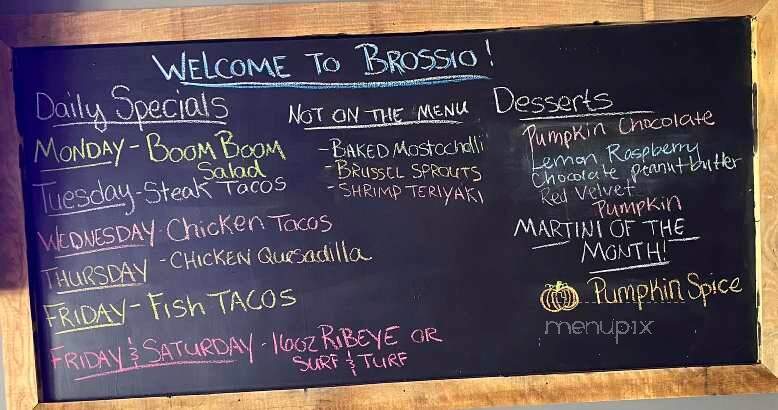 WELCOME TO BROSSIO!
Daily Specials
MONDAY - BOOM BOOM
Salad
Tuesday - Steak TACOS
WEDNESDAY - Chicken Tacos
THURSDAY - CHICKEN Quesadilla
FRIDAY - Fish TACOS
FRIDAY & SATURDAY - 16oz RIBEYE OR
SURF & TURF
NOT ON THE MENU
- BAKED Mostacholli
- BRUSSEL SPROUTS
- SHRIMP TERIYAKI
Desserts
Pumpkin Chocolate
Lemon Raspberry
Chocolate peanutbutter
Red Velvet
Pumpkin
MARTINI OF THE
MONTH!
Pumpkin Spice
menupix